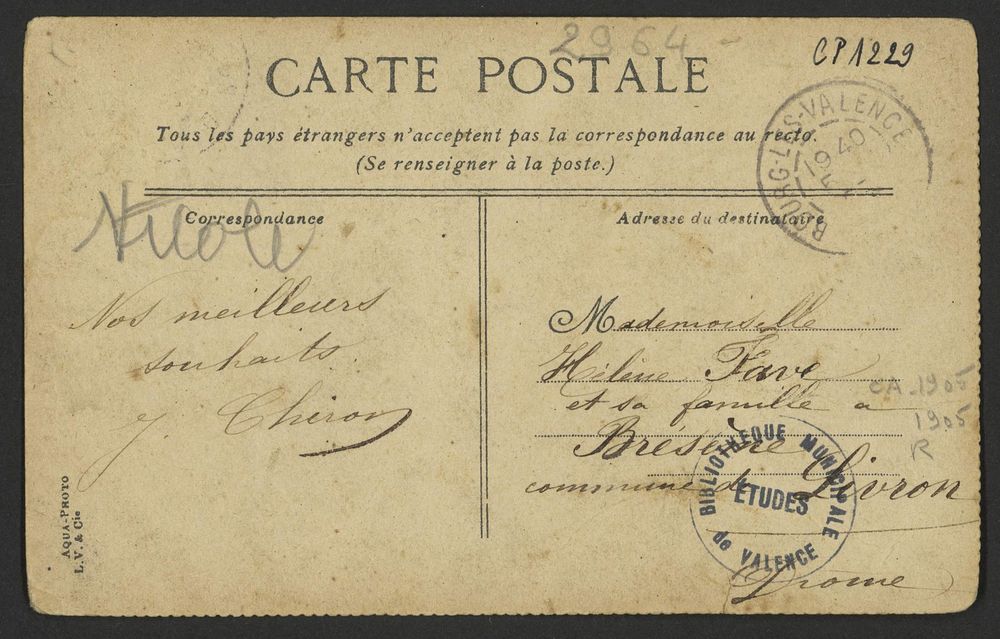 2964
CP1229
CARTE POSTALE
Tous les pays étrangers n'acceptent pas la correspondance au recto.
(Se renseigner à la poste.)
BOURG-LES-VALENCE
Correspondance
Nicole
Nos meilleurs
souhaits.
J. Chéron
AQUA-PHOTO
L.V. & Cie
Adresse du destinataire
Mademoiselle
Hélène Fave
et sa famille a
Brésème
commune de Livron
Drome
CA-1905
1905
R
BIBLIOTHÈQUE MUNICIPALE
ETUDES
de VALENCE